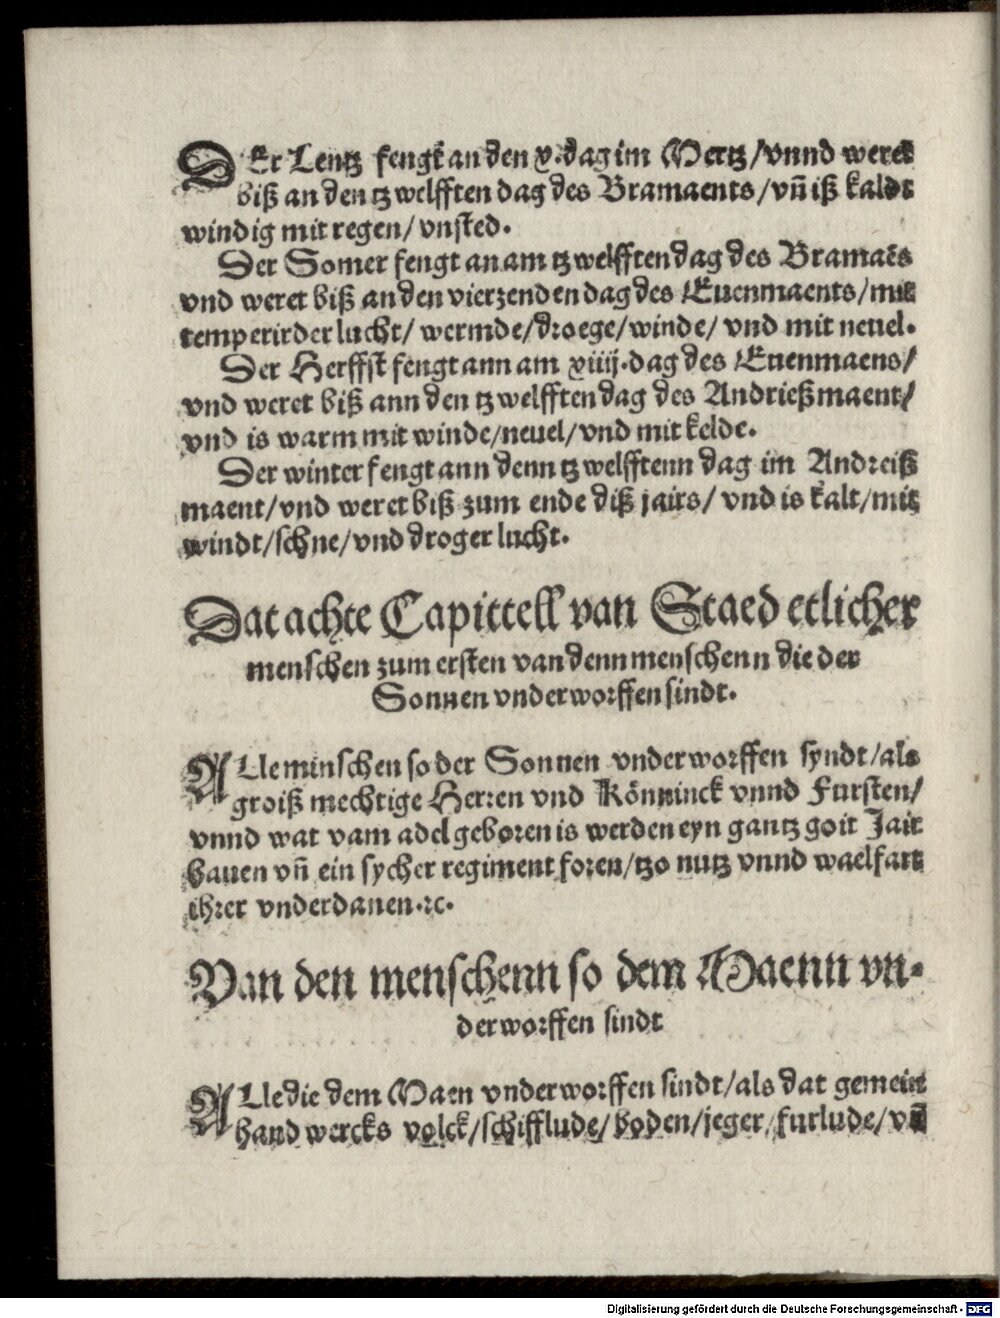 DEr Lentz fengt an den x.dag im Mertz/vnnd weret
biß an den tzwelfften dag des Bramaents/vñ iß kaldt
windig mit regen/vnsted.
Der Somer fengt an am tzwelfften dag des Bramaẽs
vnd weret biß an den vierzenden dag des Euenmaents/mit
temperirder lucht/ wermde/droege/winde/ vnd mit neuel.
Der Herffst fengt ann am xiiij.dag des Euenmaens/
vnd weret biß ann den tzwelfften dag des Andrießmaent/
vnd is warm mit winde/neuel/vnd mit kelde.
Der winter fengt ann denn tzwelfftenn dag im Andreiß
maent/vnd weret biß zum ende diß jairs/ vnd is kalt/mit
windt/schne/vnd droger lucht.
Dat achte Capittell van Staed etlicher
menschen zum ersten van denn menschenn die der
Sonnen vnderworffen sindt.
ALle minschen so der Sonnen vnderworffen syndt/als
groiß mechtige Herren vnd Könninck vnnd Fursten/
vnnd wat vam adel geboren is werden eyn gantz goit Jair
hauen vñ ein sycher regiment foren/tzo nutz vnnd waelfart
ihrer vnderdanen.ꝛc.
Van den menschenn so dem Maenn vn-
derworffen sindt
ALle die dem Maen vnderworffen sindt/als dat gemein
handwercks volck/schifflude/boden/jeger/furlude/vñ
Digitalisierung gefördert durch die Deutsche Forschungsgemeinschaft - DFG